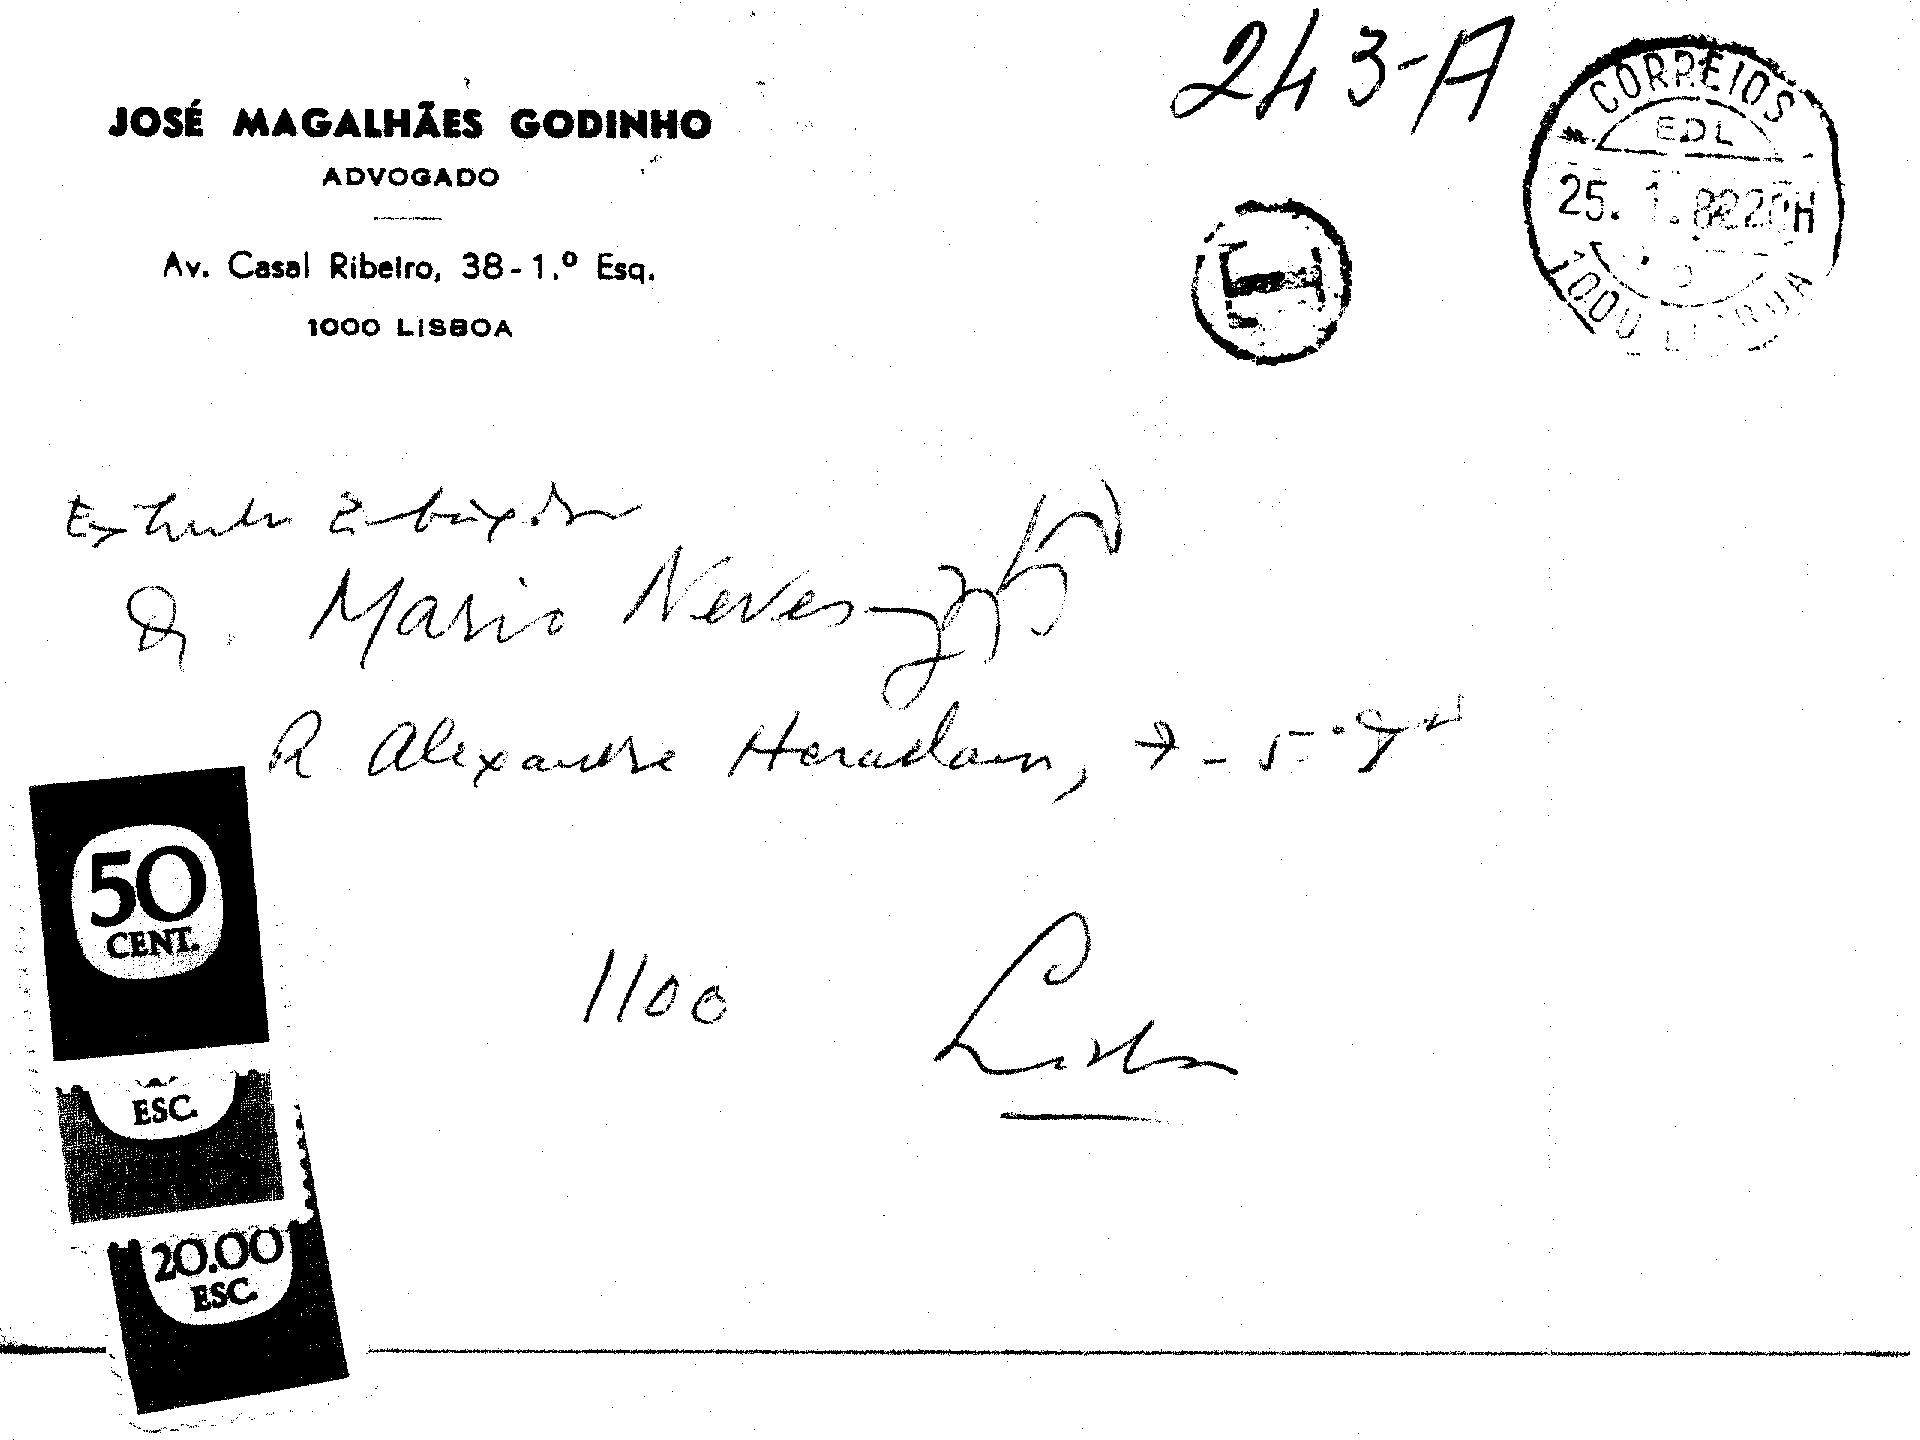 243-A
JOSÉ MAGALHÃES GODINHO
ADVOGADO
Av. Casal Ribeiro, 38-1.º Esq.
1000 LISBOA
CORREIOS
EDL
25. 1. 82 20H
1000 LISBOA
T
Embaixador
Dr. Mario Neves
R Alexandre Herculano, 7 - 5.º
1100 Lisboa
50
CENT.
ESC.
20.00
ESC.